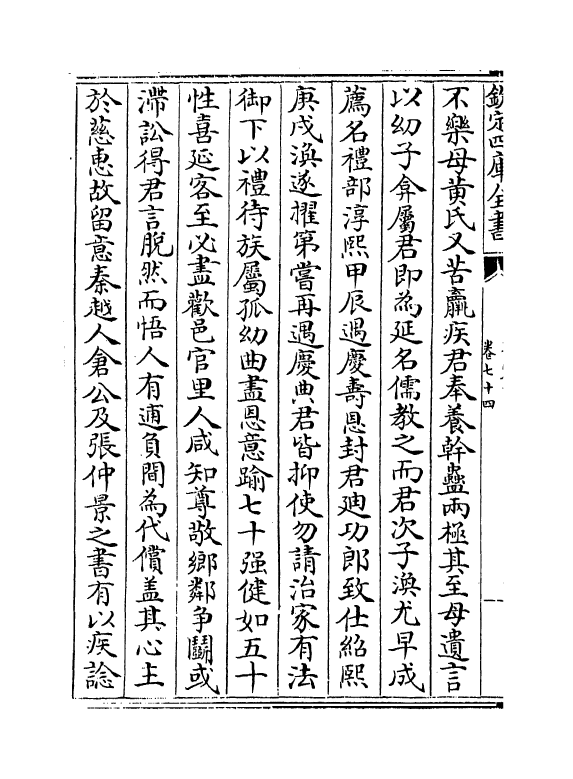 欽定四庫全書
卷七十四
不樂母黄氏又苦羸疾君奉養幹蠱兩極其至母遺言
以幼子弇屬君即為延名儒教之而君次子渙尤早成
薦名禮部淳熙甲辰遇慶壽恩封君迪功郎致仕紹熙
庚戌渙遂擢第嘗再遇慶典君皆抑使勿請治家有法
御下以禮待族屬孤幼曲盡恩意踰七十强健如五十
性喜延客至必盡歡邑官里人咸知尊敬鄉鄰争鬭或
滯訟得君言脱然而悟人有逋負間為代償盖其心主
於慈惠故留意秦越人倉公及張仲景之書有以疾諗